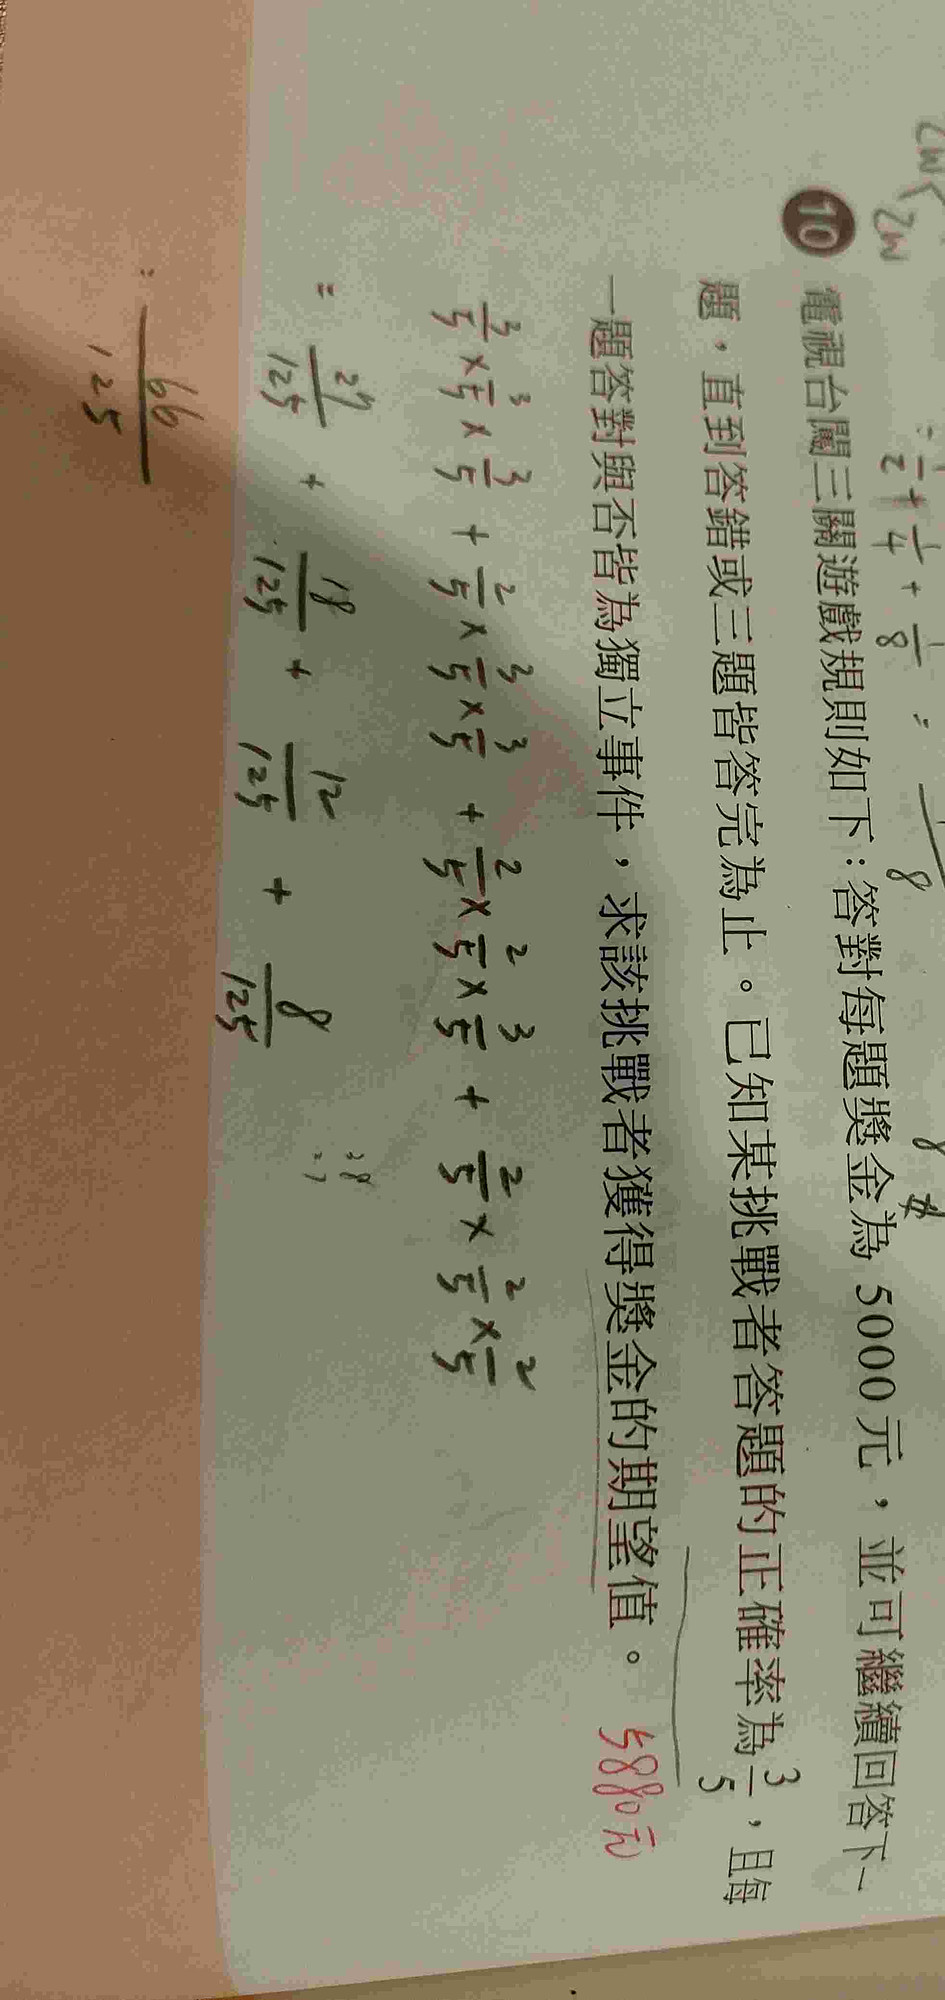 2W< 2W
= 1/2 + 1/4 + 1/8 =
10 電視台闖三關遊戲規則如下：答對每題獎金為 5000 元，並可繼續回答下一
題，直到答錯或三題皆答完為止。已知某挑戰者答題的正確率為 3/5，且每
一題答對與否皆為獨立事件，求該挑戰者獲得獎金的期望值。 5880元
3/5 × 3/5 × 3/5 + 2/5 × 3/5 × 3/5 + 2/5 × 2/5 × 3/5 + 2/5 × 2/5 × 2/5
= 27/125 + 18/125 + 12/125 + 8/125
= 66/125